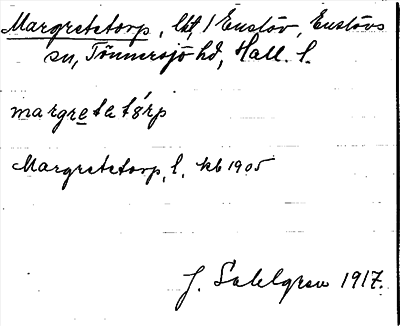 Margretetorp, lht, / Enslöv, Enslövs
sn, Tönnersjö hd, Hall. l.
margretatòrp
Margretetorp, l, kb 1905
J. Sahlgren 1917.